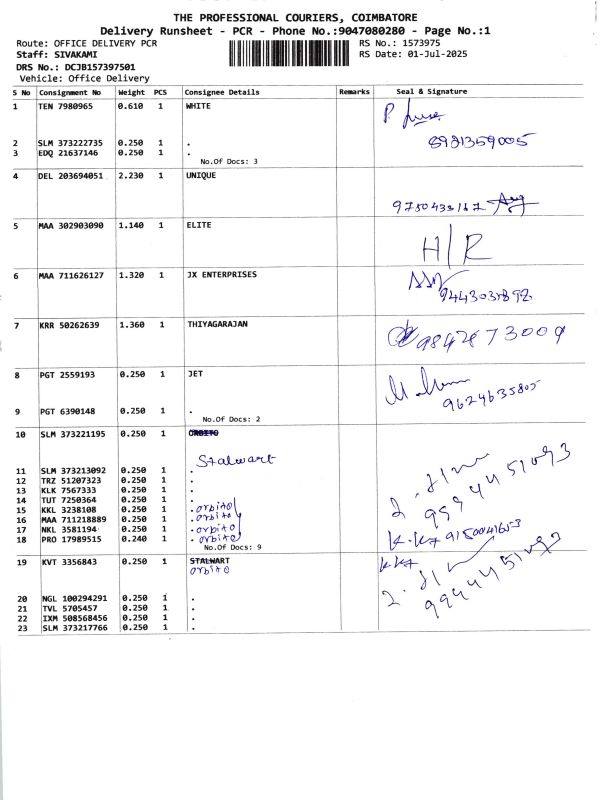 THE PROFESSIONAL COURIERS, COIMBATORE
Delivery Runsheet - PCR - Phone No.:9047080280 - Page No.:1
Route: OFFICE DELIVERY PCR RS No.: 1573975
Staff: SIVAKAMI RS Date: 01-Jul-2025
DRS No.: DCJB157397501
Vehicle: Office Delivery
S No Consignment No Weight PCS Consignee Details Remarks Seal & Signature
1 TEN 7980965 0.610 1 WHITE
2 SLM 373222735 0.250 1 .
8921359005
3 EDQ 21637146 0.250 1 .
No.Of Docs: 3
4 DEL 203694051 2.230 1 UNIQUE
9750433167
5 MAA 302903090 1.140 1 ELITE
H/R
6 MAA 711626127 1.320 1 JX ENTERPRISES
7 KRR 50262639 1.360 1 THIYAGARAJAN
8 PGT 2559193 0.250 1 JET
9624635805
9 PGT 6390148 0.250 1 .
No.Of Docs: 2
10 SLM 373221195 0.250 1 ORBITO
Stalwart
11 SLM 373213092 0.250 1 .
12 TRZ 51207323 0.250 1 .
13 KLK 7567333 0.250 1 .
14 TUT 7250364 0.250 1 .
15 KKL 3238108 0.250 1 . orbito
16 MAA 711218889 0.250 1 . orbito
17 NKL 3581194 0.250 1 . orbito
18 PRO 17989515 0.240 1 . orbito
No.Of Docs: 9
19 KVT 3356843 0.250 1 STALWART
orbito
20 NGL 100294291 0.250 1 .
21 TVL 5705457 0.250 1 .
22 IXM 508568456 0.250 1 .
23 SLM 373217766 0.250 1 .